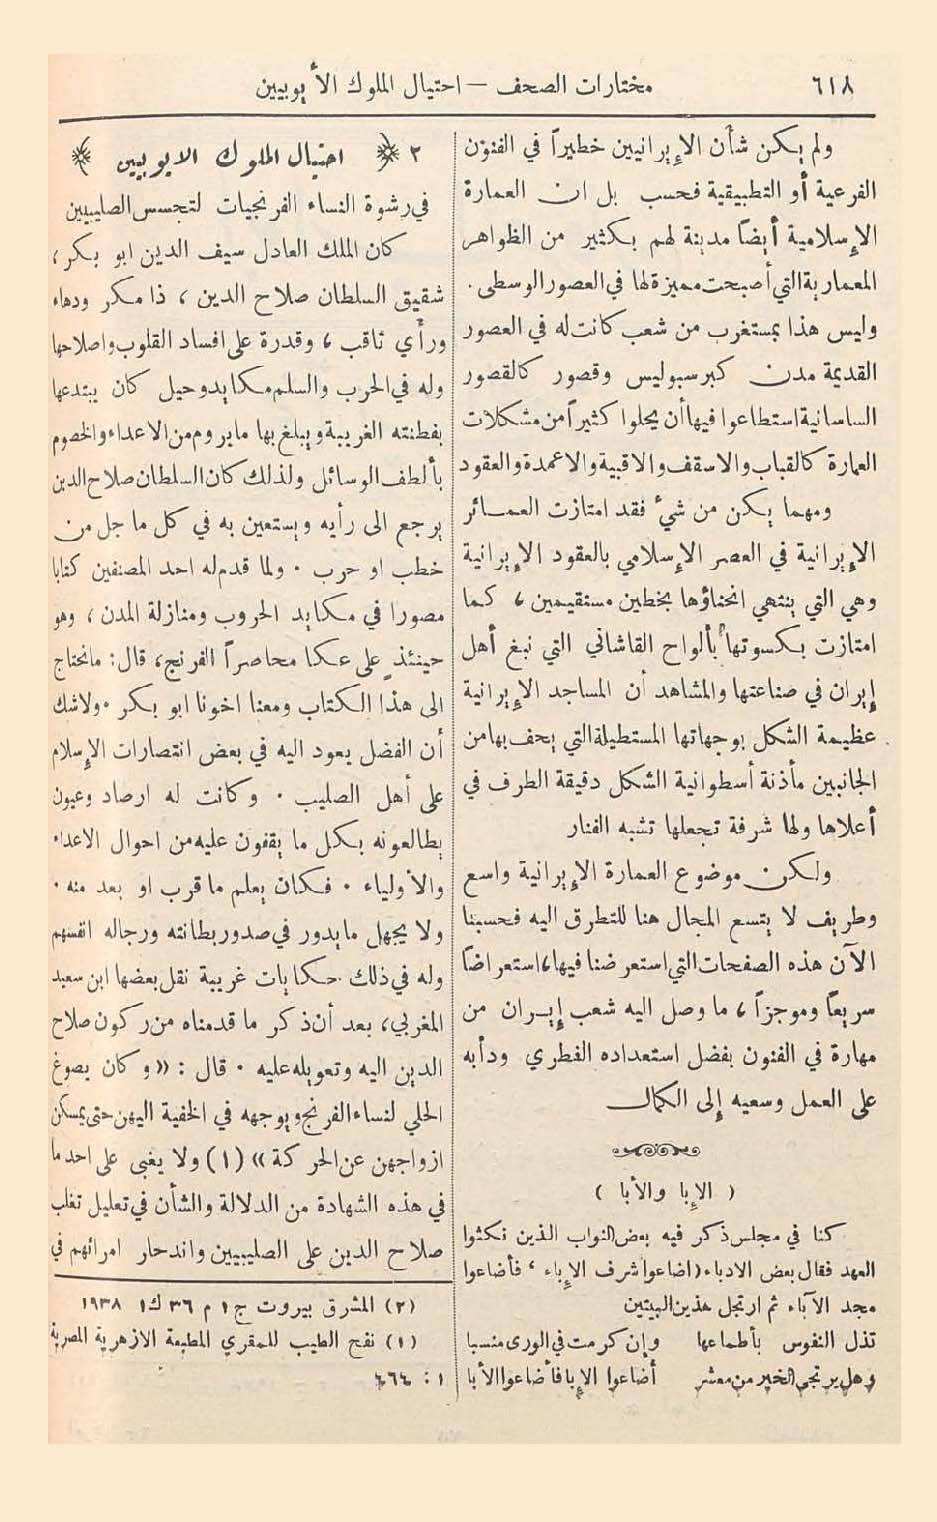 ٦١٨
مختارات الصحف – احتيال الملوك الأيوبيين
ولم يكن شأن الإيرانيين خطيراً في الفنون
الفرعية أو التطبيقية فحسب بل ان العمارة
الإسلامية أيضاً مدينة لهم بكثير من الظواهر
المعمارية التي أصبحت مميزة لها في العصور الوسطى.
وليس هذا بمستغرب من شعب كانت له في العصور
القديمة مدن كبرسبوليس وقصور كالقصور
الساسانية استطاعوا فيها أن يحلوا كثيراً من مشكلات
العمارة كالقباب والاسقف والاقبية والاعمدة والعقود
ومهما يكن من شيء فقد امتازت العمائر
الإيرانية في العصر الإسلامي بالعقود الإيرانية
وهي التي ينتهي انحناؤها بخطين مستقيمين، كما
امتازت بكسوتها بألواح القاشاني التي نبغ أهل
إيران في صناعتها والمشاهد أن المساجد الإيرانية
عظيمة الشكل بوجهاتها المستطيلة التي يحف بها من
الجانبين مأذنة أسطوانية الشكل دقيقة الطرف في
أعلاها ولها شرفة تجعلها تشبه الفنار
ولكن موضوع العمارة الإيرانية واسع
وطريف لا يتسع المجال هنا للتطرق اليه فحسبنا
الآن هذه الصفحات التي استعرضنا فيها، استعراضاً
سريعاً وموجزاً، ما وصل اليه شعب إيران من
مهارة في الفنون بفضل استعداده الفطري ودأبه
على العمل وسعيه إلى الكمال
( الإبا والأبا )
كنا في مجلس ذكر فيه بعض النواب الذين نكثوا
العهد فقال بعض الادباء (اضاعوا شرف الإباء، فأضاعوا
مجد الآباء ثم ارتجل هذين البيتين
تذل النفوس بأطماعها وإن كرمت في الورى منسبا
وهل يرتجى الخير من معشر أضاعوا الإبا فأضاعوا الأبا
٢ احتيال الملوك الايوبيين
في رشوة النساء الفرنجيات لتجسس الصليبيين
كان الملك العادل سيف الدين ابو بكر،
شقيق السلطان صلاح الدين، ذا مكر ودهاء
ورأي ثاقب، وقدرة على افساد القلوب واصلاحها
وله في الحرب والسلم مكايد وحيل كان يبتدعها
بفطنته الغريبة ويبلغ بها ما يروم من الاعداء والخصوم
بألطف الوسائل ولذلك كان السلطان صلاح الدين
يرجع الى رأيه ويستعين به في كل ما جل من
خطب او حرب. ولما قدم له احد المصنفين كتابا
مصورا في مكايد الحروب ومنازلة المدن، وهو
حينئذٍ على عكا محاصراً الفرنج، قال: ما نحتاج
الى هذا الكتاب ومعنا اخونا ابو بكر. ولا شك
أن الفضل يعود اليه في بعض انتصارات الإسلام
على أهل الصليب. وكانت له ارصاد وعيون
يطالعونه بكل ما يقفون عليه من احوال الاعداء
والأولياء. فكان يعلم ما قرب او بعد منه.
ولا يجهل ما يدور في صدور بطانته ورجاله انفسهم
وله في ذلك حكايات غريبة نقل بعضها ابن سعيد
المغربي، بعد أن ذكر ما قدمناه من ركون صلاح
الدين اليه وتعويله عليه. قال: «وكان يصوغ
الحلي لنساء الفرنج ويوجهه في الخفية اليهن حتى يمسكن
ازواجهن عن الحركة» (١) ولا يغبى على احد ما
في هذه الشهادة من الدلالة والشأن في تعليل تغلب
صلاح الدين على الصليبيين واندحار امرائهم في
(٢) المشرق بيروت ج ١ م ٣٦ ك١ ١٩٣٨
(١) نفح الطيب للمقري المطبعة الازهرية المصرية
١ : ٤٦٤